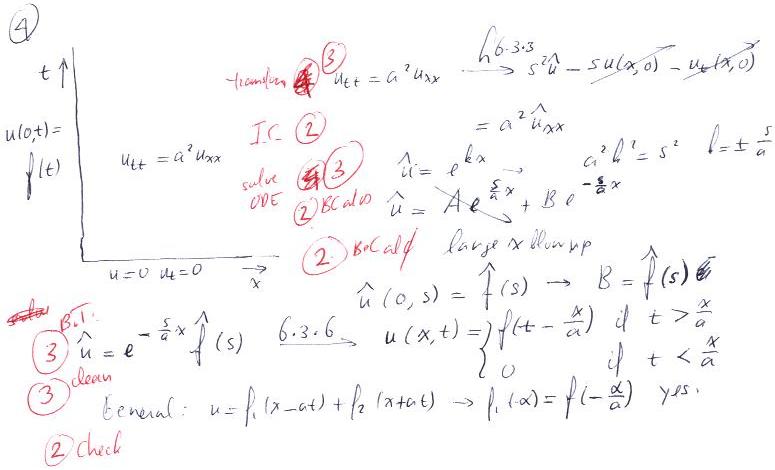 4
t ↑
u(0,t) =
f(t)
u_tt = a² u_xx
u=0 u_t=0 → x
transform 3 u_tt = a² u_xx → 6.3.3 s² û − s u(x,0) − u_t(x,0)
I.C. 2 = a² û_xx
solve ODE 3 û = e^{kx} → a² k² = s² k = ± s/a
2 BC at ∞ û = A e^{s/a x} + B e^{−s/a x}
2 BC at large x blowup
û(0,s) = f̂(s) → B = f̂(s)
B.T.
3 û = e^{−s/a x} f̂(s) 6.3.6 → u(x,t) = { f(t − x/a) if t > x/a
0 if t < x/a
3 clean
General: u = f₁(x−at) + f₂(x+at) → f₁(α) = f(−α/a) yes.
2 check